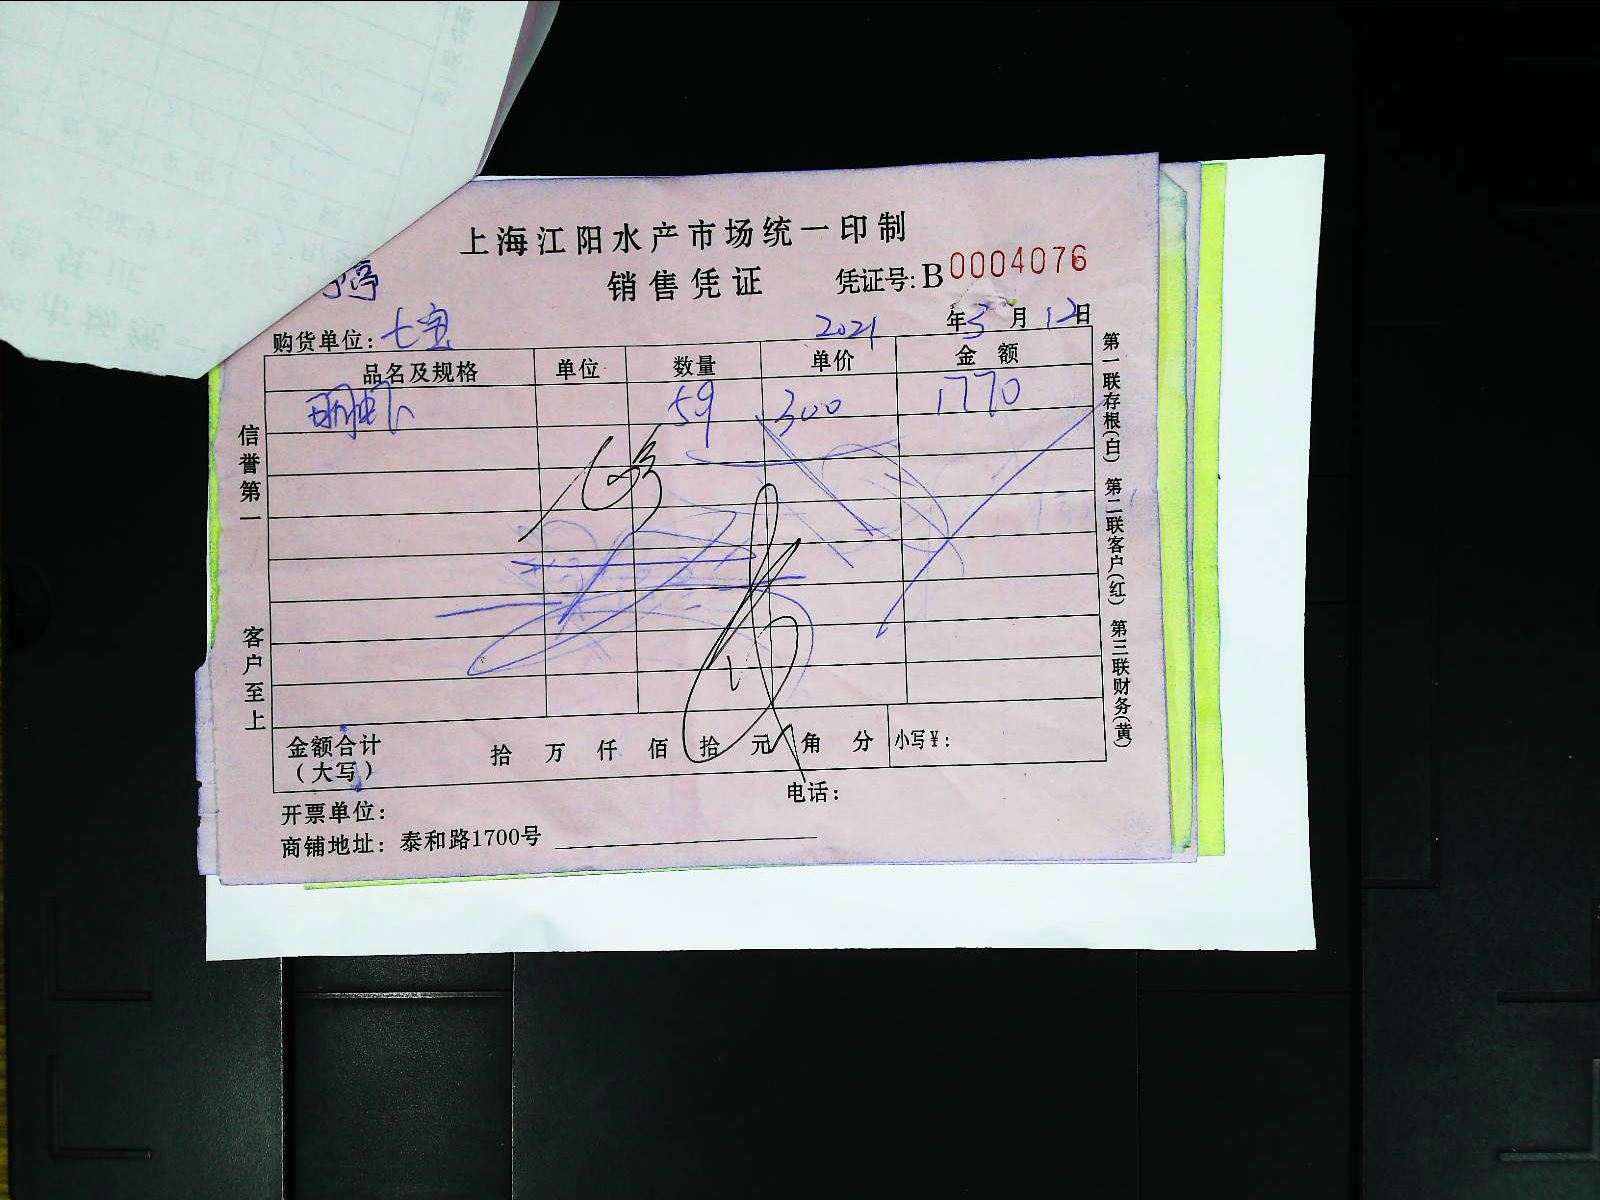 上海江阳水产市场统一印制
销售凭证 凭证号:B0004076
婷
购货单位:七宝 2021年3月12日
品名及规格 单位 数量 单价 金额
明虾 59 300 1770
信誉第一 客户至上
第一联存根(白) 第二联客户(红) 第三联财务(黄)
金额合计 拾 万 仟 佰 拾 元 角 分 小写¥:
(大写)
开票单位: 电话:
商铺地址:泰和路1700号